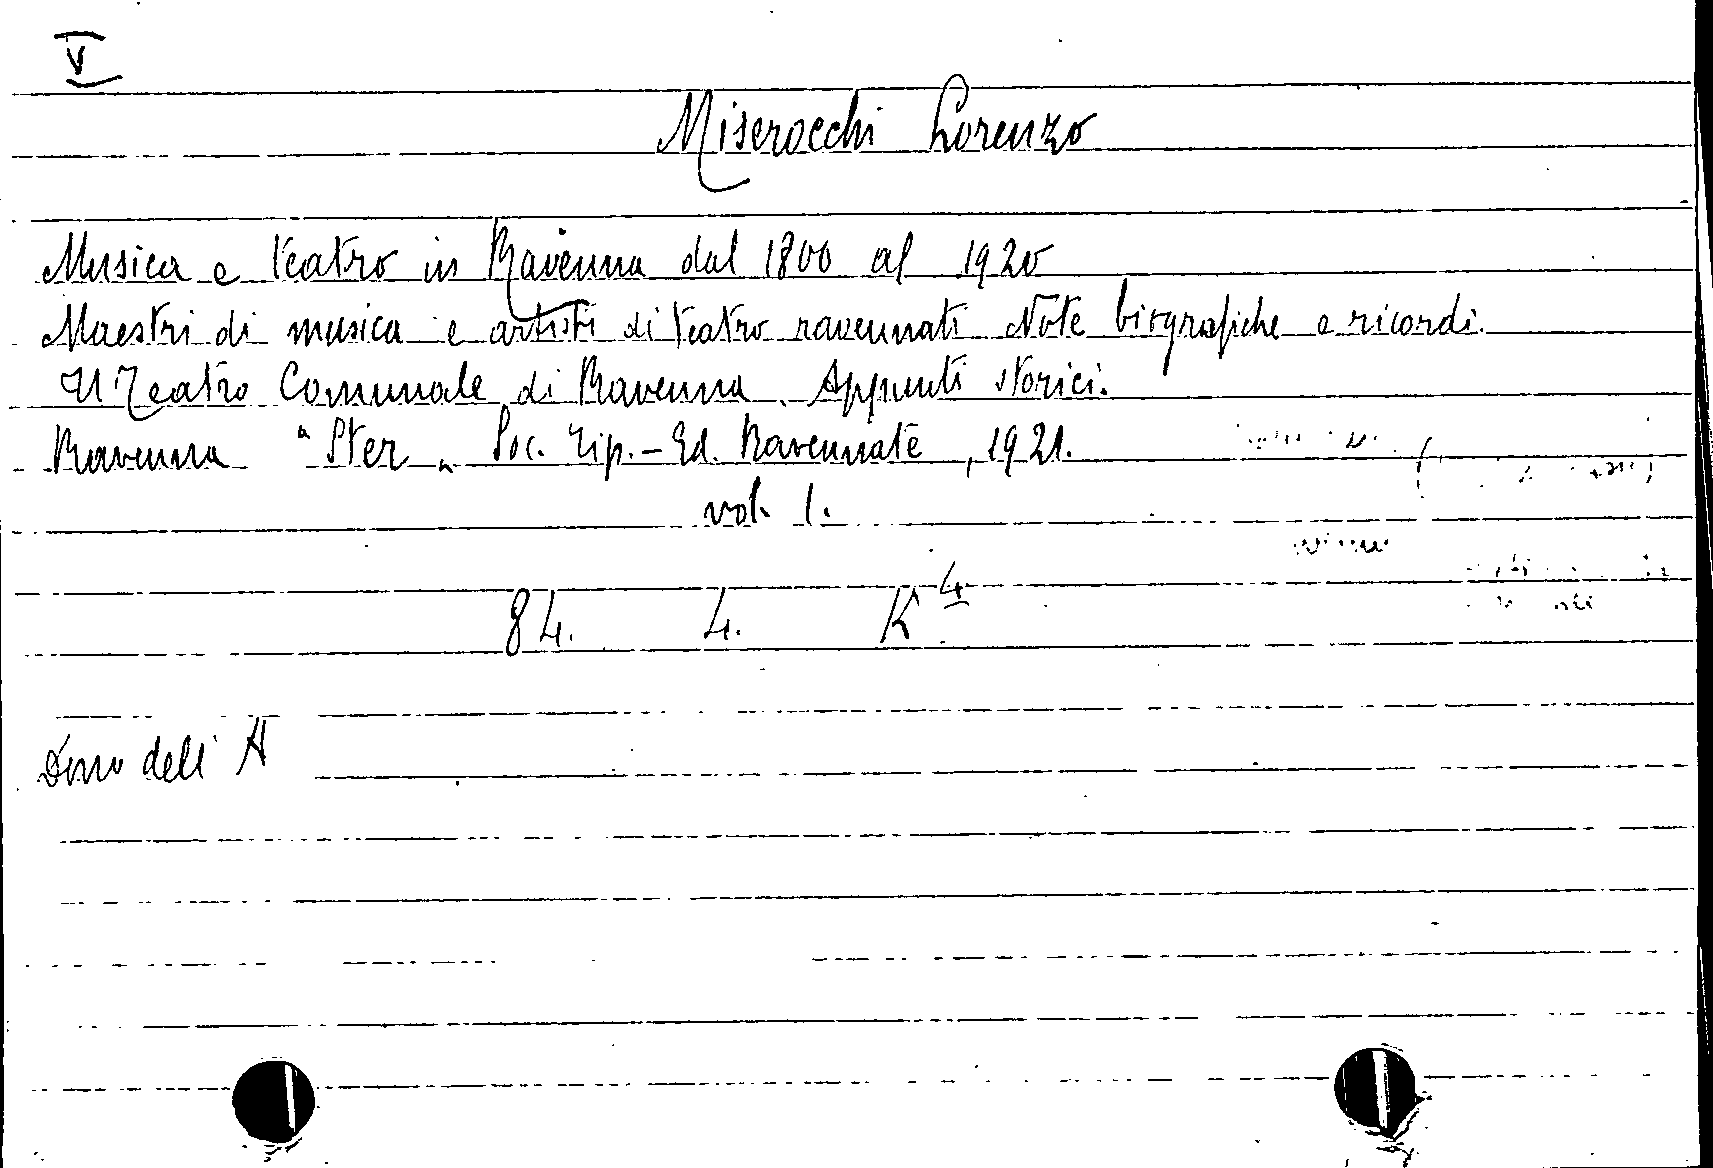 V
Miserocchi Lorenzo
Musica e teatro in Ravenna dal 1800 al 1920
Maestri di musica e artisti di teatro ravennati Note biografiche e ricordi.
Il Teatro Comunale di Ravenna. Appunti storici.
Ravenna "Ster" Soc. Tip.-Ed. Ravennate, 1921.
vol. 1.
84. 4. K 4
Dono dell' A